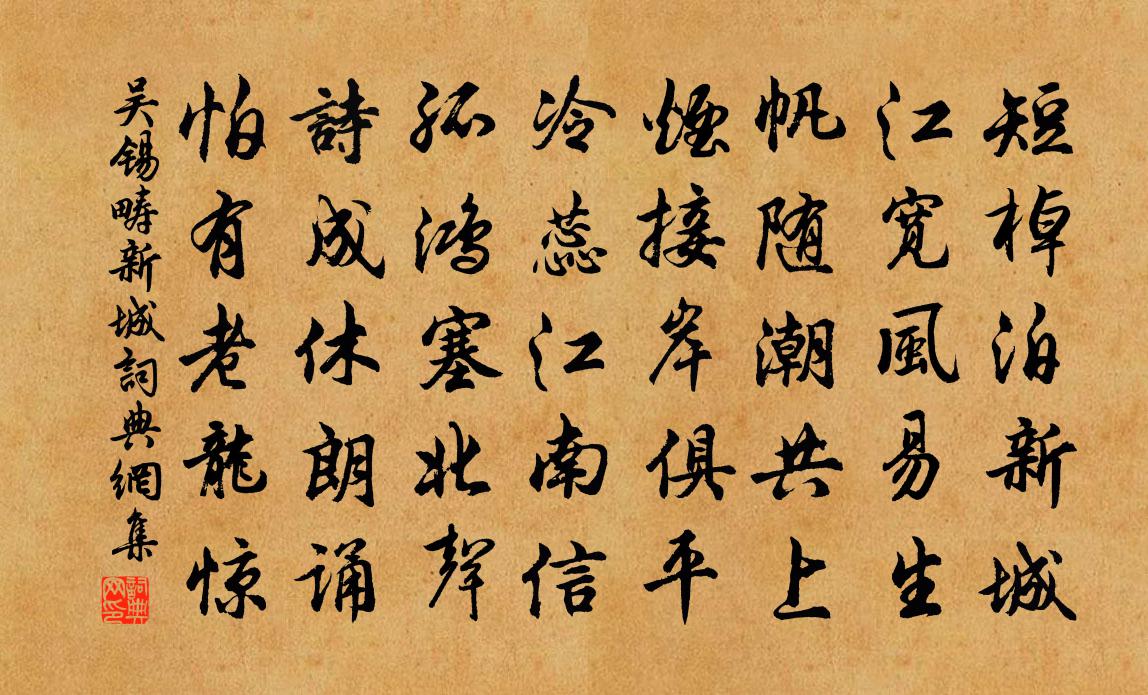 短棹泊新城
江寛風易生
帆随潮共上
煙接岸俱平
冷蕊江南信
孤鴻塞北聲
詩成休朗诵
怕有老龍惊
吴锡疇新城詞典網集
詞典网印